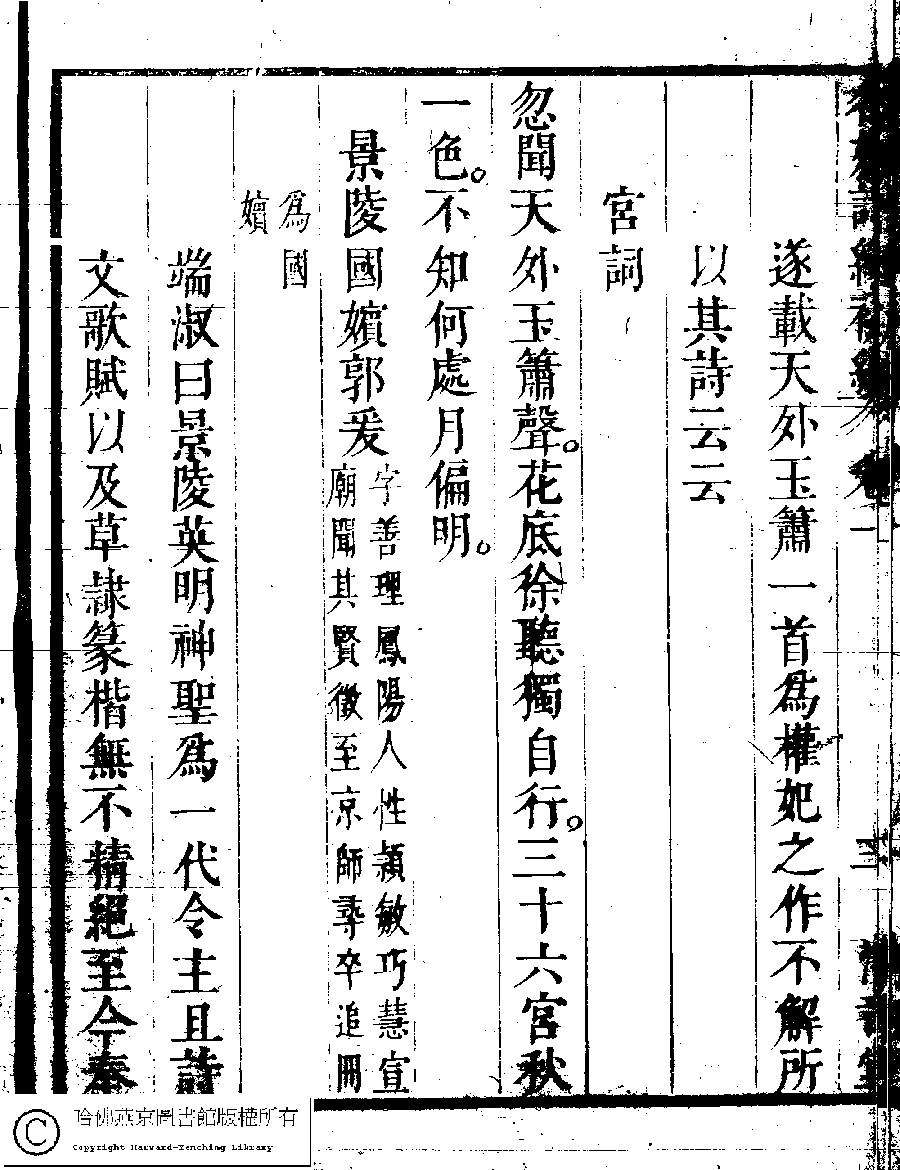 名媛詩緯初編 卷一 三 清音堂
遂載天外玉簫一首爲權妃之作不解所
以其詩云云
宮詞
忽聞天外玉簫聲。花底徐聽獨自行。三十六宮秋
一色。不知何處月偏明。
景陵國嬪郭爰
字善理鳳陽人性穎敏巧慧宣
廟聞其賢徵至京師尋卒追冊
爲國
嬪
端淑曰景陵英明神聖爲一代令主且詩
文歌賦以及草隸篆楷無不精絕至今奉
哈佛燕京圖書館版權所有
Copyright Harvard-Yenching Library